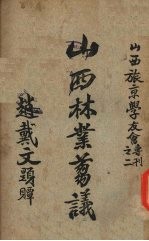 山西旅京學友會專刊
之二
山西林業芻議
趙戴文題贉